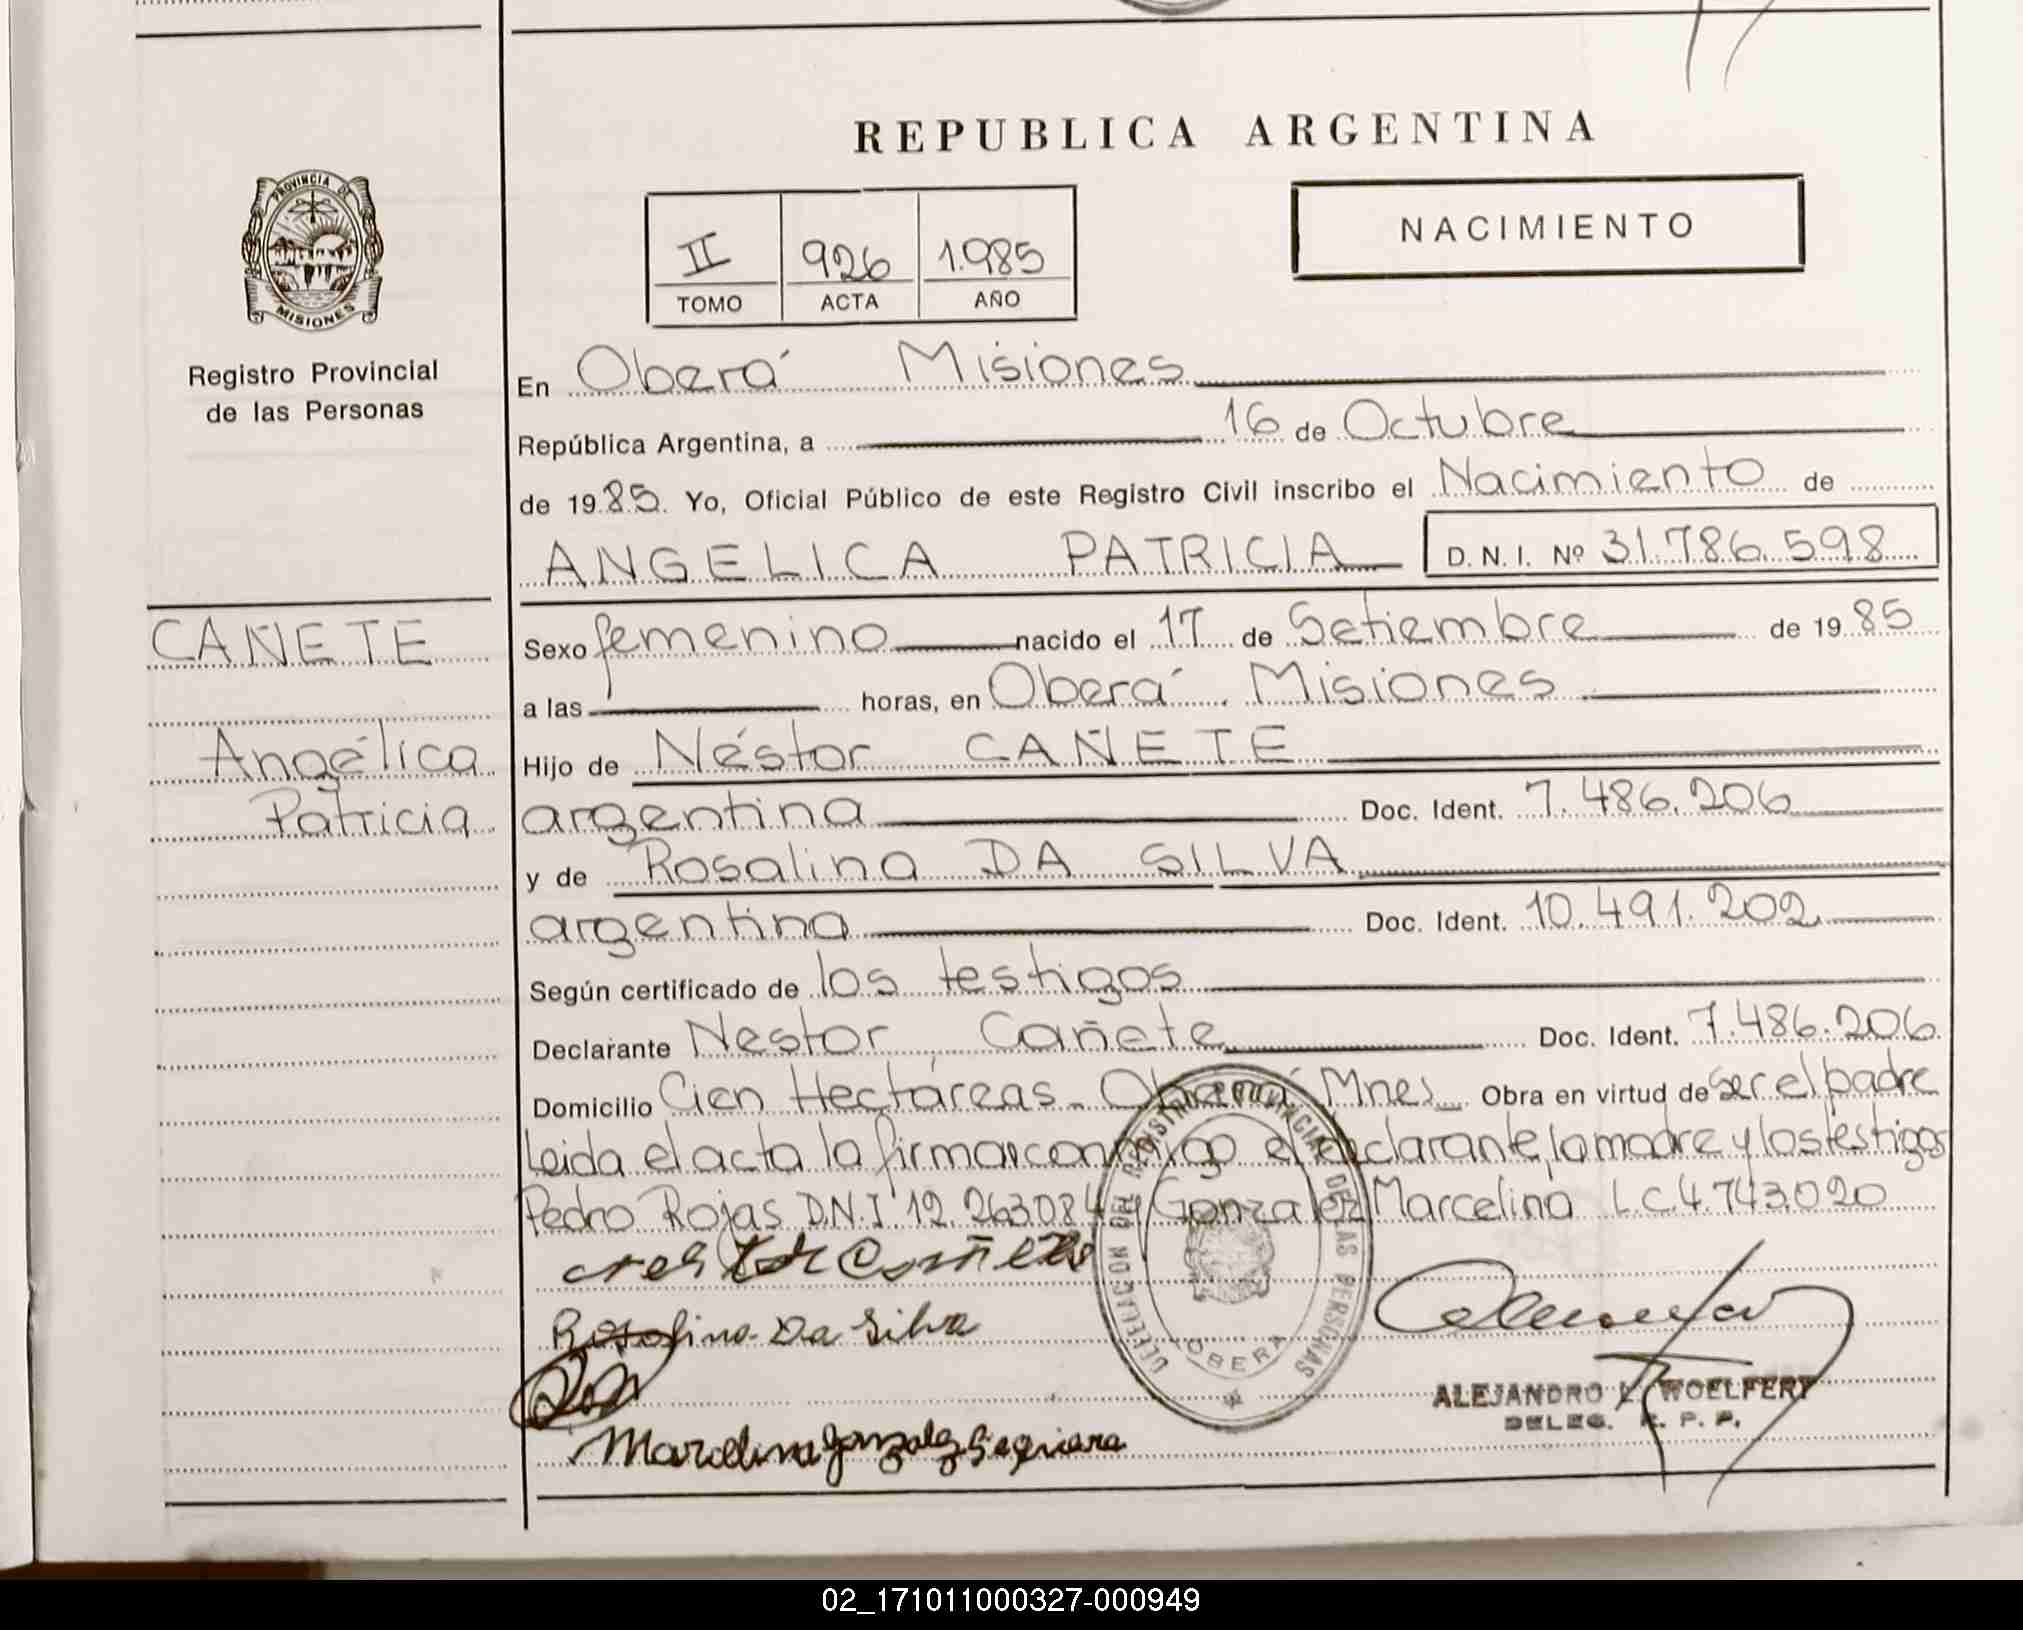 REPUBLICA ARGENTINA
NACIMIENTO
II 926 1.985
TOMO ACTA AÑO
PROVINCIA DE
MISIONES
Registro Provincial
de las Personas
En Oberá Misiones
República Argentina, a 16 de Octubre
de 1985 Yo, Oficial Público de este Registro Civil inscribo el Nacimiento de
ANGELICA PATRICIA D.N.I. Nº 31.786.598
CAÑETE
Angélica
Patricia
Sexo femenino nacido el 17 de Setiembre de 1985
a las horas, en Oberá Misiones
Hijo de Néstor CAÑETE
argentina Doc. Ident. 7.486.206
y de Rosalina DA SILVA
argentina Doc. Ident. 10.491.202
Según certificado de los testigos
Declarante Nestor Cañete Doc. Ident. 7.486.206
Domicilio Cien Hectáreas - Oberá Mnes Obra en virtud de ser el padre
Leida el acta la firman conmigo el declarante, la madre y los testigos
Pedro Rojas D.N.I 12.263.084 y Gonzalez Marcelina L.C 4.743.020
Nestor Cañete
Rosalina Da Silva
Marcelina Gonzalez Sequiera
DELEGACION DEL REGISTRO PROVINCIAL DE LAS PERSONAS
OBERA
ALEJANDRO L. WOELFERT
DELEG. R. P. P.
02_171011000327-000949